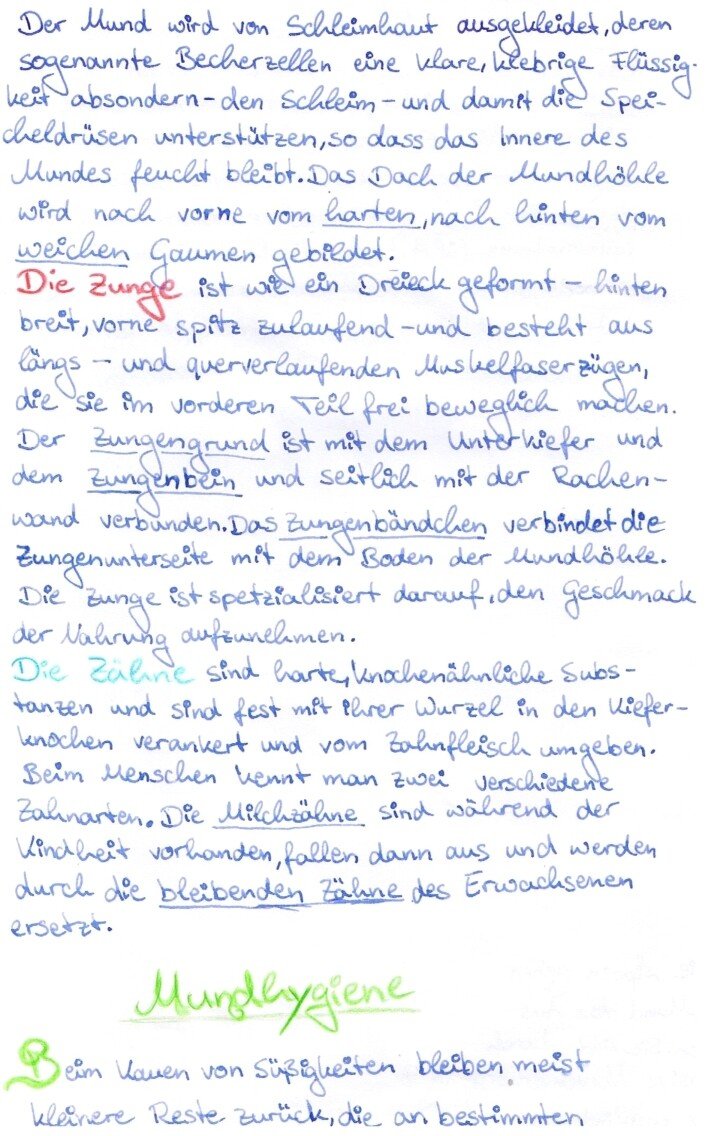 Der Mund wird von Schleimhaut ausgekleidet, deren
sogenannte Becherzellen eine klare, klebrige Flüssig-
keit absondern - den Schleim - und damit die Spei-
cheldrüsen unterstützen, so dass das Innere des
Mundes feucht bleibt. Das Dach der Mundhöhle
wird nach vorne vom harten, nach hinten vom
weichen Gaumen gebildet.
Die Zunge ist wie ein Dreieck geformt - hinten
breit, vorne spitz zulaufend - und besteht aus
längs - und querverlaufenden Muskelfaserzügen,
die sie im vorderen Teil frei beweglich machen.
Der Zungengrund ist mit dem Unterkiefer und
dem Zungenbein und seitlich mit der Rachen-
wand verbunden. Das Zungenbändchen verbindet die
Zungenunterseite mit dem Boden der Mundhöhle.
Die Zunge ist spetzialisiert darauf, den Geschmack
der Nahrung aufzunehmen.
Die Zähne sind harte, knochenähnliche Subs-
tanzen und sind fest mit ihrer Wurzel in den Kiefer-
knochen verankert und vom Zahnfleisch umgeben.
Beim Menschen kennt man zwei verschiedene
Zahnarten. Die Milchzähne sind während der
Kindheit vorhanden, fallen dann aus und werden
durch die bleibenden Zähne des Erwachsenen
ersetzt.
Mundhygiene
Beim Kauen von Süßigkeiten bleiben meist
kleinere Reste zurück, die an bestimmten